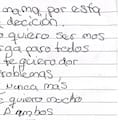 mama, por esta
decición.
quiero ser mos
rga para todos
te quiero dar
problemas,
Nunca mas
quiero mucho
A ambos